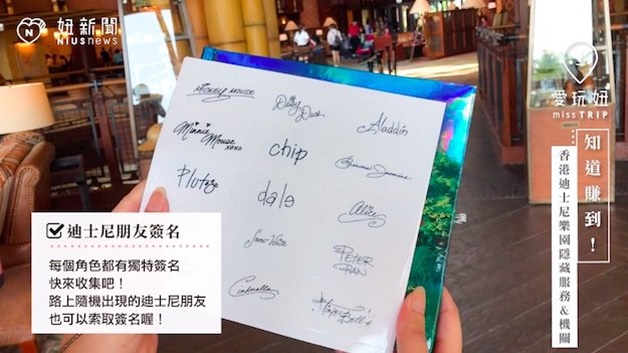 妞新聞
NIUSnews
愛玩妞
missTRIP
知道賺到！
香港迪士尼樂園隱藏服務&機關
Mickey Mouse
Daisy Duck
Aladdin
Minnie Mouse
xoxo
chip
Princess Jasmine
Pluto
dale
Alice
Snow White
PETER PAN
Cinderella
迪士尼朋友簽名
每個角色都有獨特簽名
快來收集吧！
路上隨機出現的迪士尼朋友
也可以索取簽名喔！